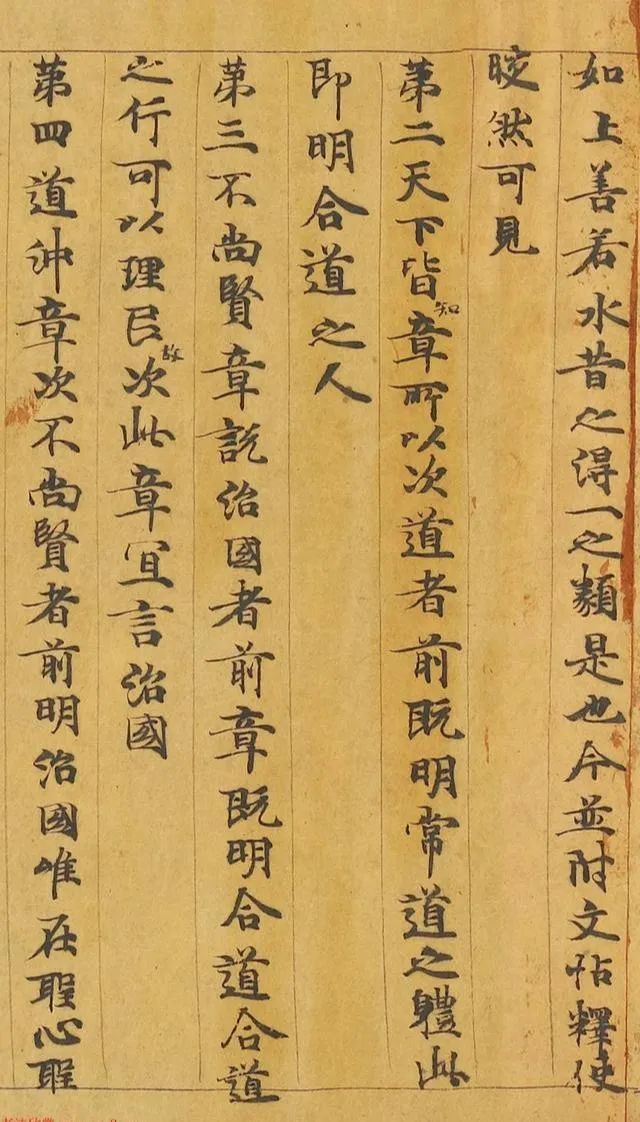 如上善若水昔之得一之類是也今並附文帖釋使
皎然可見
第二天下皆知章所以次道者前既明常道之體此
即明合道之人
第三不尚賢章說治國者前章既明合道合道
之行可以理民故次此章宜言治國
第四道沖章次不尚賢者前明治國唯在聖心聖